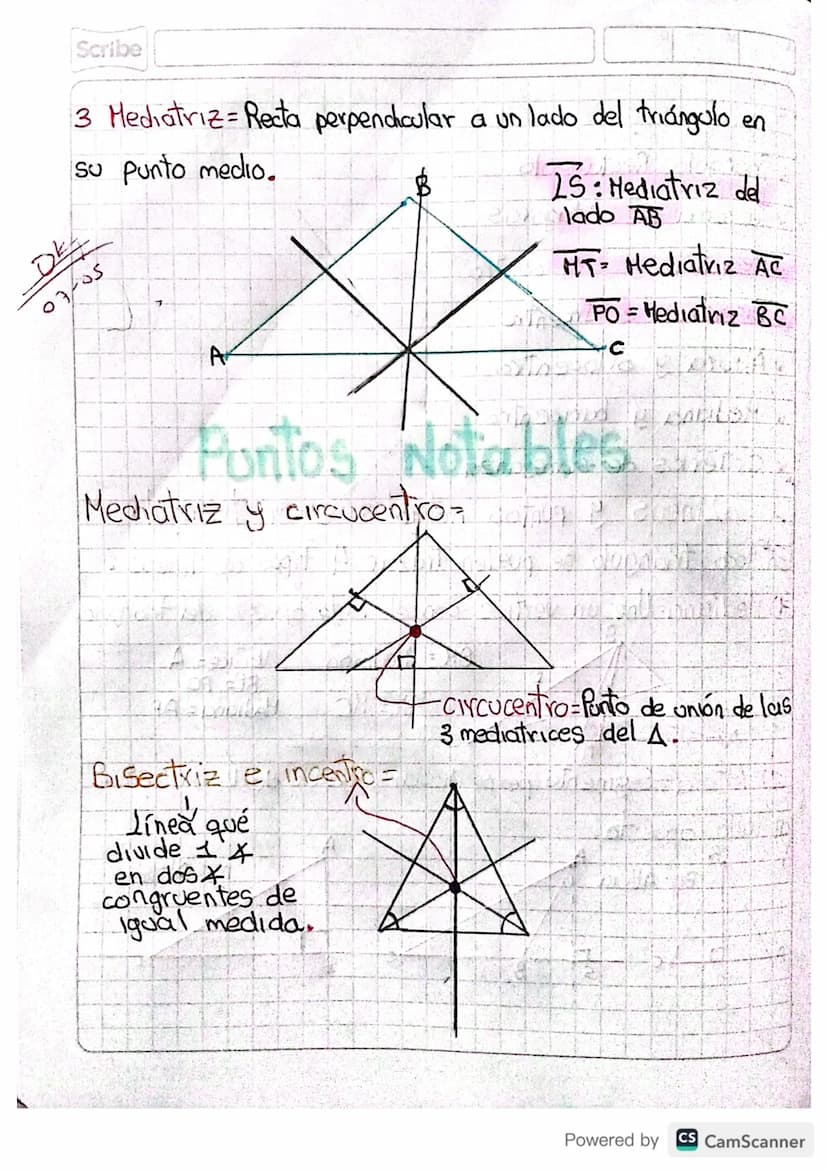 Scribe
3 Mediatriz = Recta perpendicular a un lado del triángulo en
su punto medio.
B
LS : Mediatriz del
lado AB
MT = Mediatriz AC
PO = Mediatriz BC
07-05
A
C
Puntos Notables
Mediatriz y circucentro =
circucentro = Punto de unión de las
3 mediatrices del Δ.
Bisectriz e incentro =
Línea qué
divide 1 ∡
en dos ∡
congruentes de
igual medida.
Powered by CS CamScanner